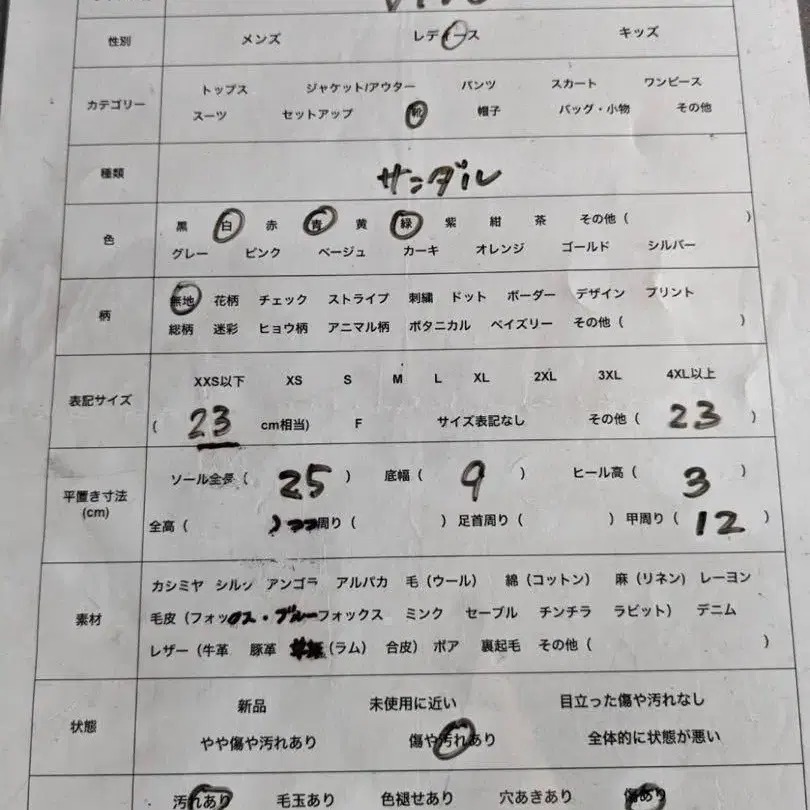 性別 メンズ レディース キッズ
カテゴリー
トップス ジャケット/アウター パンツ スカート ワンピース
スーツ セットアップ 靴 帽子 バッグ・小物 その他
種類 サンダル
色
黒 白 赤 青 黄 緑 紫 紺 茶 その他 ( )
グレー ピンク ベージュ カーキ オレンジ ゴールド シルバー
柄
無地 花柄 チェック ストライプ 刺繍 ドット ボーダー デザイン プリント
総柄 迷彩 ヒョウ柄 アニマル柄 ボタニカル ペイズリー その他 ( )
表記サイズ
XXS以下 XS S M L XL 2XL 3XL 4XL以上
( 23 cm相当) F サイズ表記なし その他 ( 23 )
平置き寸法
(cm)
ソール全長 ( 25 ) 底幅 ( 9 ) ヒール高 ( 3 )
全高 ( ) 周り ( ) 足首周り ( ) 甲周り ( 12 )
素材
カシミヤ シルク アンゴラ アルパカ 毛 (ウール) 綿 (コットン) 麻 (リネン) レーヨン
毛皮 (フォックス・ブルーフォックス ミンク セーブル チンチラ ラビット) デニム
レザー (牛革 豚革 (ラム) 合皮) ボア 裏起毛 その他 ( )
状態
新品 未使用に近い 目立った傷や汚れなし
やや傷や汚れあり 傷や汚れあり 全体的に状態が悪い
汚れあり 毛玉あり 色褪せあり 穴あきあり 傷あり